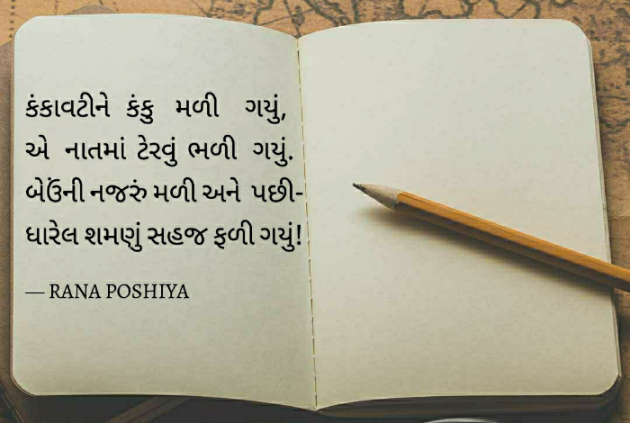 કંકાવટીને કંકુ મળી ગયું,
એ નાતમાં ટેરવું ભળી ગયું.
બેઉંની નજરું મળી અને પછી-
ધારેલ શમણું સહજ ફળી ગયું!
— RANA POSHIYA